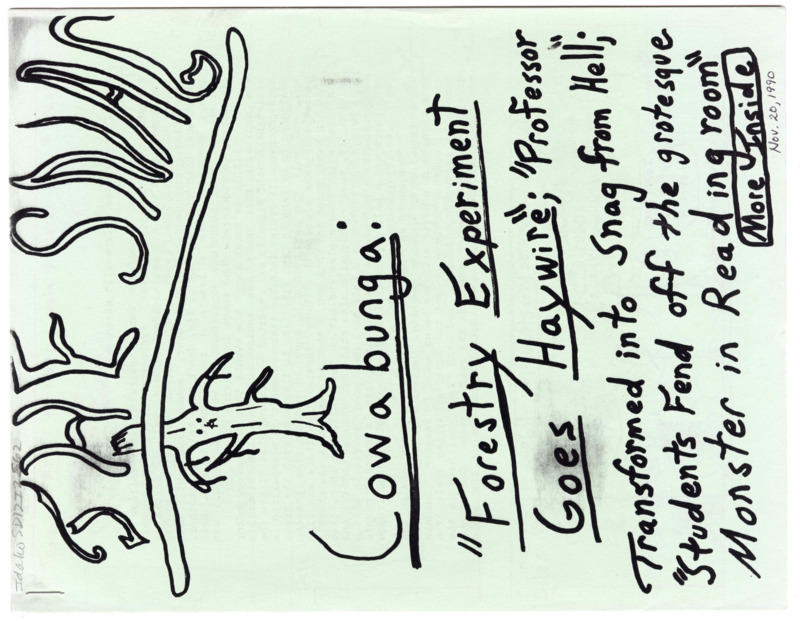 Idaho
THE SNAG
Cowabunga:
"Forestry Experiment
Goes Haywire"; "Professor
Transformed into Snag from Hell";
"Students Fend off the grotesque
Monster in Reading room"
More Inside
Nov. 20, 1990